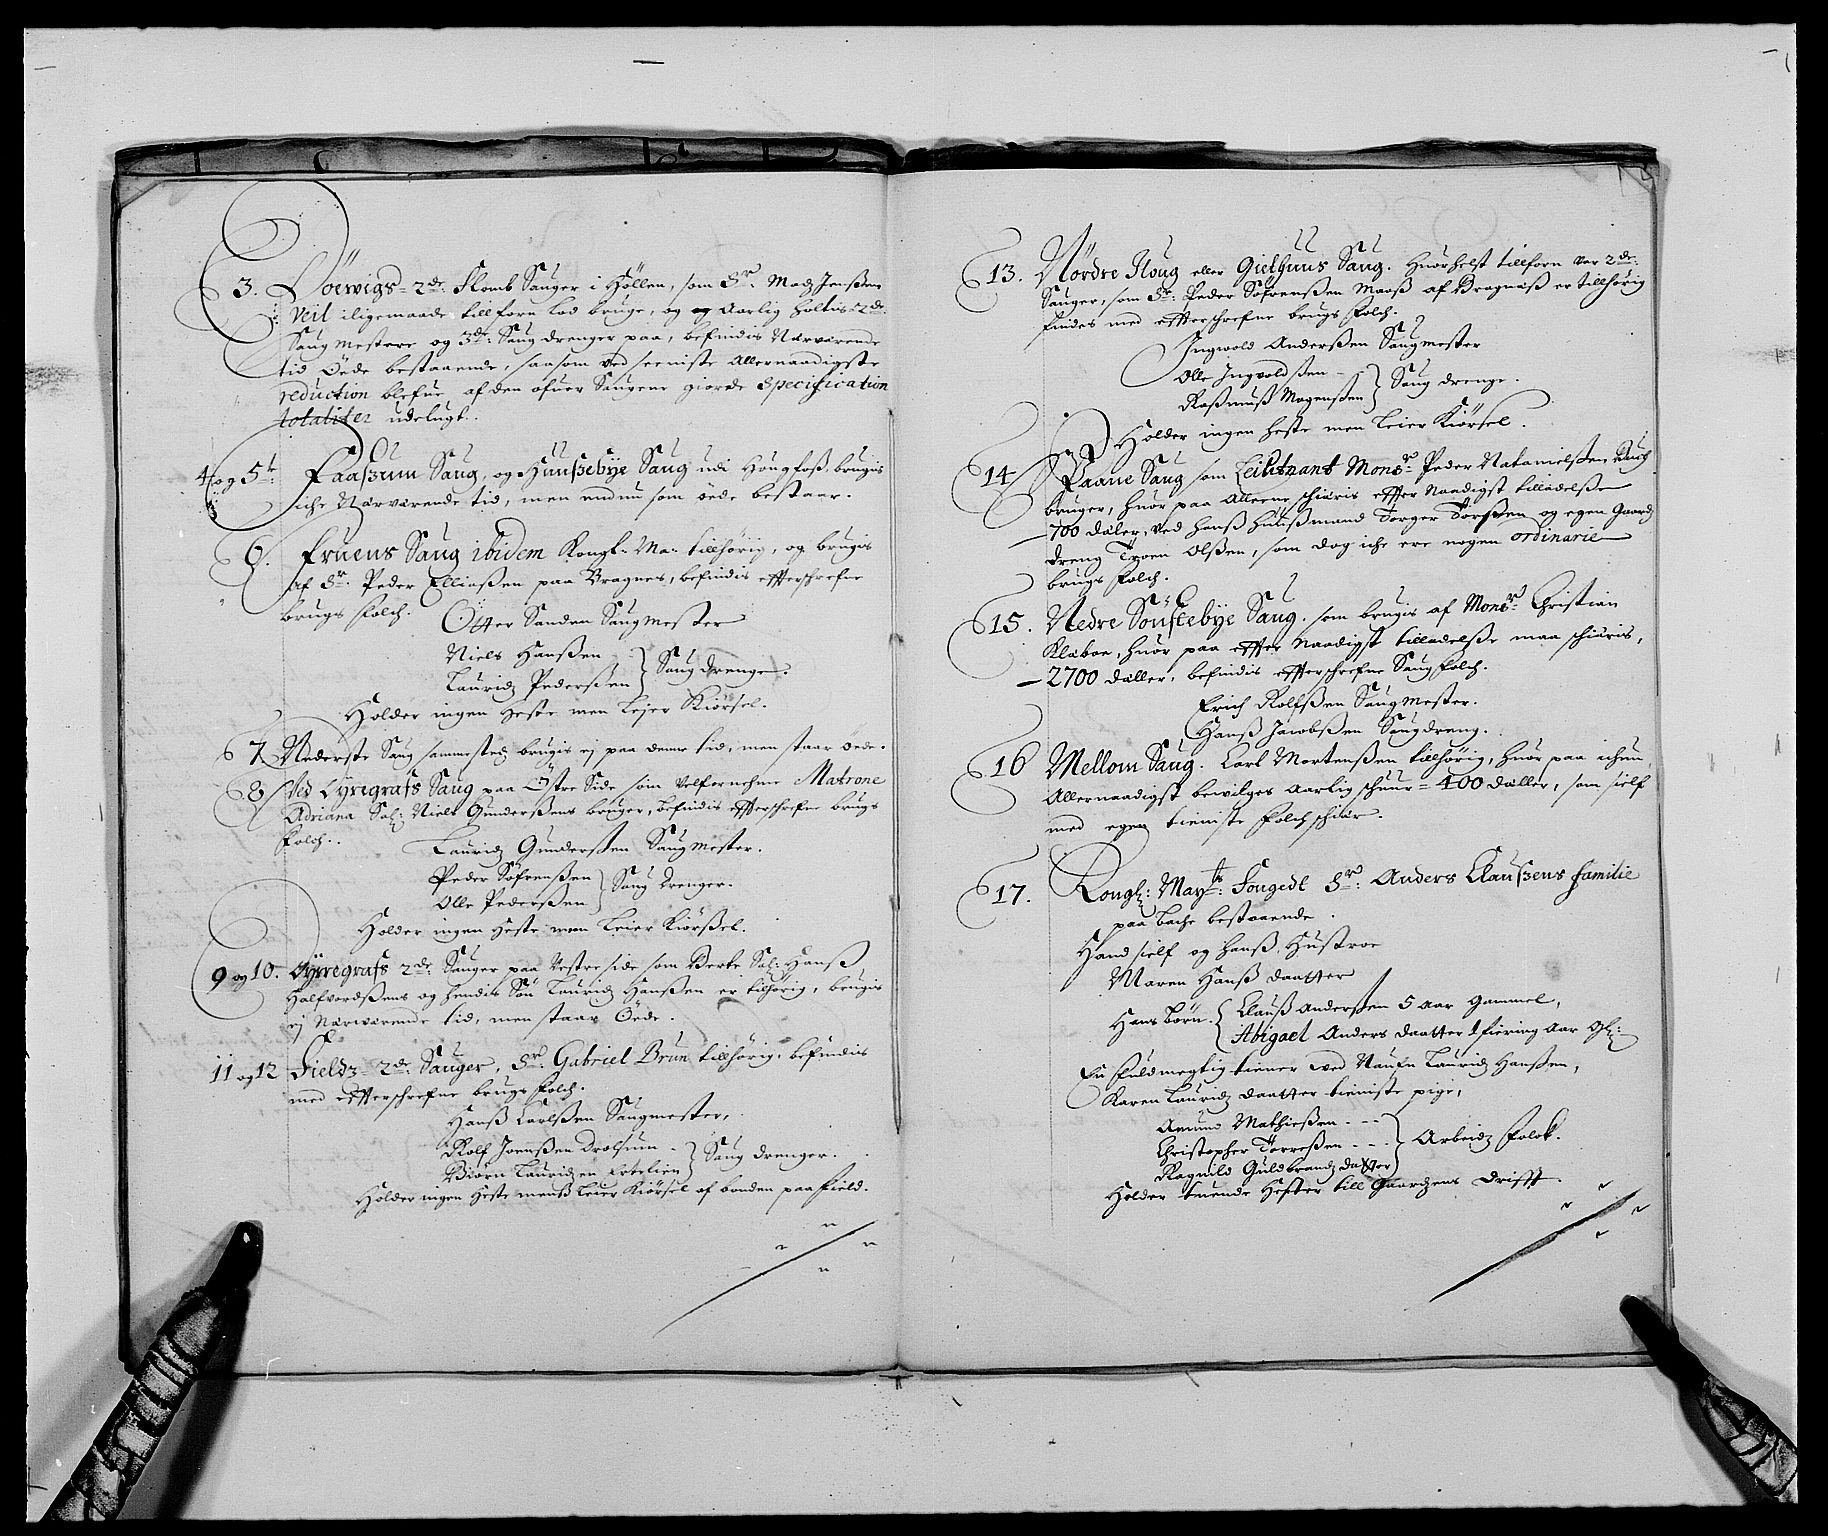 3. Döewigs 2de: Flomb Sauger i Höllen, som Sr: Madz Jenßen
Veil iligemaade tillforn lod bruge, og Aarlig holtis 2de.
Saug Mestere og 3de: Saug drenger paa, befindis Nærværende
tid Öede bestaaende, saasom ved seeniste Allernaadigste
reduction blefue af den ofuer Saugene giorde Specification
totaliter udelugt.
4 og 5te: Faaßum Saug, og Hunßebÿe Saug udi Hougfoß brugis
iche Nærværende tid, men endnu som öede bestaar.
6. Fruens Saug ibidem Kongl: Ma: tillhörig, og brugis
af Sr: Peder Elliaßen paa Bragnes, befindis effterschrefne
brugs Folch.
Otter Sanden Saug Mester
Niels Hanßen
Lauridz Pederßen } Saug drenge.
Holder ingen Heste men Lejer Kiörsel.
7 Nederste Saug sammestedz brugis ej paa denne tid, men staar öede.
8 Ved Lÿregrafs Saug paa Östre Side som Velfornehme Matrone
Adriana Sal: Niels Gunderßens bruger, befindis effterschrefne brugs
Folch.
Lauridz Gunderßen Saug Mester.
Peder Söfrenßen
Olle Pederßen } Saug Drenger.
Holder ingen Heste men Leier Kiörßel.
9 og 10. Lÿregrafs 2de: Sauger paa Vestre side som Berte Sal: Hanß
Halfvordßens og hendis Sön Lauridz Hanßen er tilhörig, brugis
ej Nærværende tid, men staar Öede.
11 og 12 Fieldz 2de: Sauger, Sr: Gabriel Brun tillhörig, befindis
med effterschrefne brugs Folch.
Hanß Carlßen Saugmester,
Rolf Joenßen Drolsum
Biörn Lauridzen } Saug drenger.
Holder ingen Heste menß Leier Kiörsel af bonden paa Field.
13. Nördre Floug eller Giethuus Saug. Huorhelst tillforn var 2de:
Sauger, som Sr: Peder Söfrenßen Maaß af Bragnæß er tillhörig
findes med effterschrefne brugs Folch.
Ingvold Anderßen Saugmester
Olle Ingvoldßen
Raßmuß Mogenßen } Saug drenge.
Holder ingen heste men leier Kiörsel.
14 Paane Saug som Leiutnant Monsr: Peder Natanielßen
bruger, huor paa Alleene schiæris effter Naadigst tilladelße
700 dåler, ved hanß huußmand Torger Torßen og egen Gaardz
dreng Tyoen Olßen, som dog iche ere nogen ordinarie
brugs Folch.
15. Nedre Sönstebÿe Saug. som brugis af Monsr: Christian
Klaboe, huor paa effter Naadigst tilladelße maa schiæris,
2700 dåller, befindis effterschrefne Saug Folch.
Erich Rolfßen Saug Mester.
Hanß Jacobßen Saugdreng.
16 Mellom Saug. Carl Mortenßen tillhörig, huor paa ichun,
Allernaadigst bewilges Aarlig schuur 400 dåller, som sielf
med egen tieniste Folch schiær.
17. Kongl: Mayts: Fougedt Sr: Anders Claußens familie
paa Bache bestaaende.
Hand sielf og hanß Hustroe
Maren Hanß daatter
Hans Börn. { Clauß Anderßen 5 aar gammel,
Abigael Anders daatter 1 fiering Aar Gl:
En fuldmegtig tiener ved Naufn Lauridz Hanßen,
Karen Lauridz daatter tieniste pige,
Amund Mathießen
Christopher Torreßen
Ragnild Guldbrandz datter } Arbeidz Folck.
Holder tuende Hester till Gaardzens Drifft.